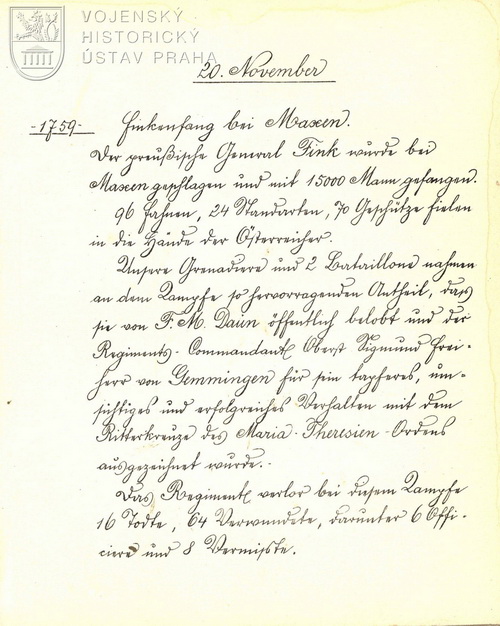 VOJENSKÝ
HISTORICKÝ
ÚSTAV PRAHA
20. November
-1759-
Finkenfang bei Maxen.
Der preußische General Fink wurde bei
Maxen geschlagen und mit 15000 Mann gefangen.
96 Fahnen, 24 Standarten, 70 Geschütze fielen
in die Hände der Österreicher.
Unsere Grenadiere und 2 Bataillone nahmen
an dem Kampfe so hervorragenden Antheil, dass
sie von F. M. Daun öffentlich belobt und der
Regiments-Commandant Oberst Sigmund Frei-
herr von Gemmingen für sein tapferes, um-
sichtiges und erfolgreiches Verhalten mit dem
Ritterkreuze des Maria-Theresien-Ordens
ausgezeichnet wurde.
Das Regiment verlor bei diesem Kampfe
16 Todte, 64 Verwundete, darunter 6 Offi-
ciere und 8 Vermisste.